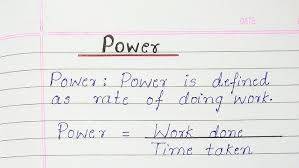 DATE
Power
Power: Power is defined
as rate of doing work.
Power = Work done
Time taken